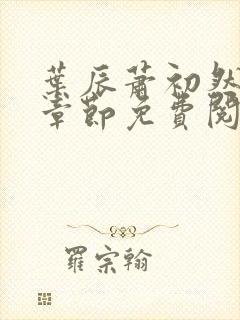 葉辰蕭初然
章節免費閱
羅宗翰